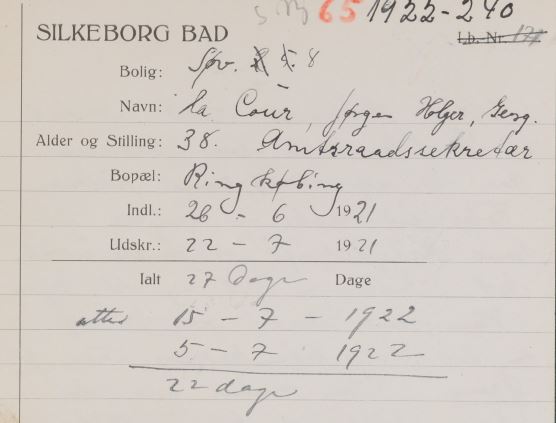 65 1922-240
SILKEBORG BAD Lb.-Nr.
Bolig: Spv. 8
Navn: la Cour, Jørgen Holger, Georg.
Alder og Stilling: 38. Amtsraadssekretær
Bopæl: Ringkøbing
Indl.: 26 - 6 1921
Udskr.: 22 - 7 1921
Ialt 27 Dage Dage
atter 15 - 7 - 1922
5 - 7 1922
22 dage